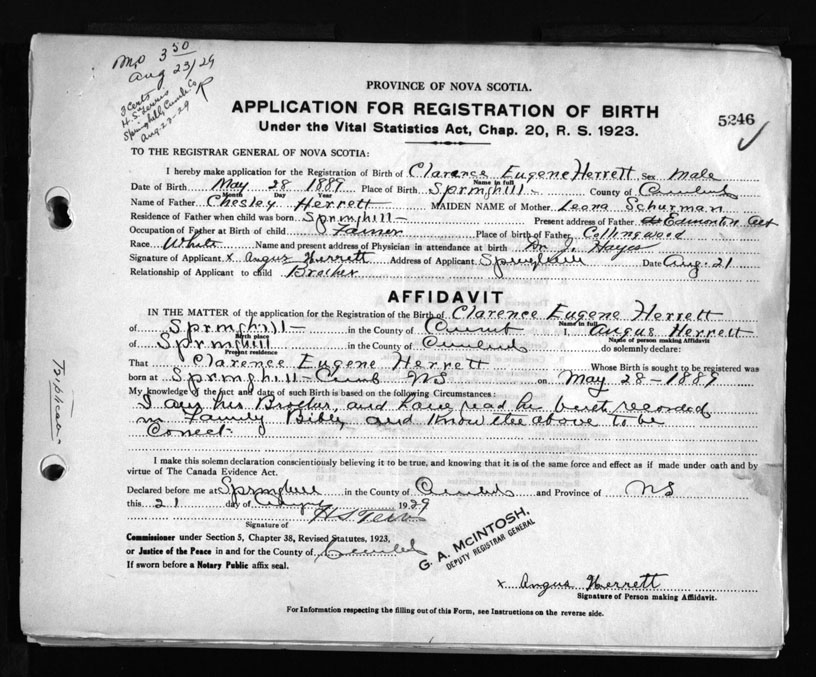 MO 3 50
Aug 23/29
R
3 Certs
H. S. Terris
Springhill, Cumb Co
Aug-22-29
PROVINCE OF NOVA SCOTIA.
APPLICATION FOR REGISTRATION OF BIRTH
Under the Vital Statistics Act, Chap. 20, R. S. 1923.
5246
TO THE REGISTRAR GENERAL OF NOVA SCOTIA:
I hereby make application for the Registration of Birth of Clarence Eugene Herrett Sex Male
Name in full
Date of Birth May 28 1889 Place of Birth Springhill - County of Cumb
Month Day Year
Name of Father Chesley Herrett MAIDEN NAME of Mother Leona Schurman
Residence of Father when child was born Springhill - Present address of Father Edmonton Alt
Occupation of Father at Birth of child Farmer Place of birth of Father Collingwood
Race White Name and present address of Physician in attendance at birth Dr J. Hayes
Signature of Applicant x Angus Herrett Address of Applicant Springhill Date Aug. 21
Relationship of Applicant to child Brother
AFFIDAVIT
IN THE MATTER of the application of the Registration of the Birth of Clarence Eugene Herrett
Name in full
of Springhill - in the County of Cumb I, Angus Herrett
Birth place Name of person making Affidavit
of Springhill in the County of Cumb do solemnly declare:
Present residence
That Clarence Eugene Herrett Whose Birth is sought to be registered was
born at Springhill - Cumb NS on May 28 - 1889
My knowledge of the fact and date of such Birth is based on the following Circumstances:
I am his Brother, and have read his birth recorded
in Family Bible, and know the above to be
Correct -
I make this solemn declaration conscientiously believing it to be true, and knowing that it is of the same force and effect as if made under oath and by
virtue of The Canada Evidence Act.
Declared before me at Springhill in the County of Cumb and Province of NS
this 21 day of August 1929
H S Terris
Signature of
Commissioner under Section 5, Chapter 38, Revised Statutes, 1923,
or Justice of the Peace in and for the County of Cumb
If sworn before a Notary Public affix seal.
G. A. McINTOSH,
DEPUTY REGISTRAR GENERAL
x Angus Herrett
Signature of Person making Affidavit.
For Information respecting the filling out of this Form, see Instructions on the reverse side.